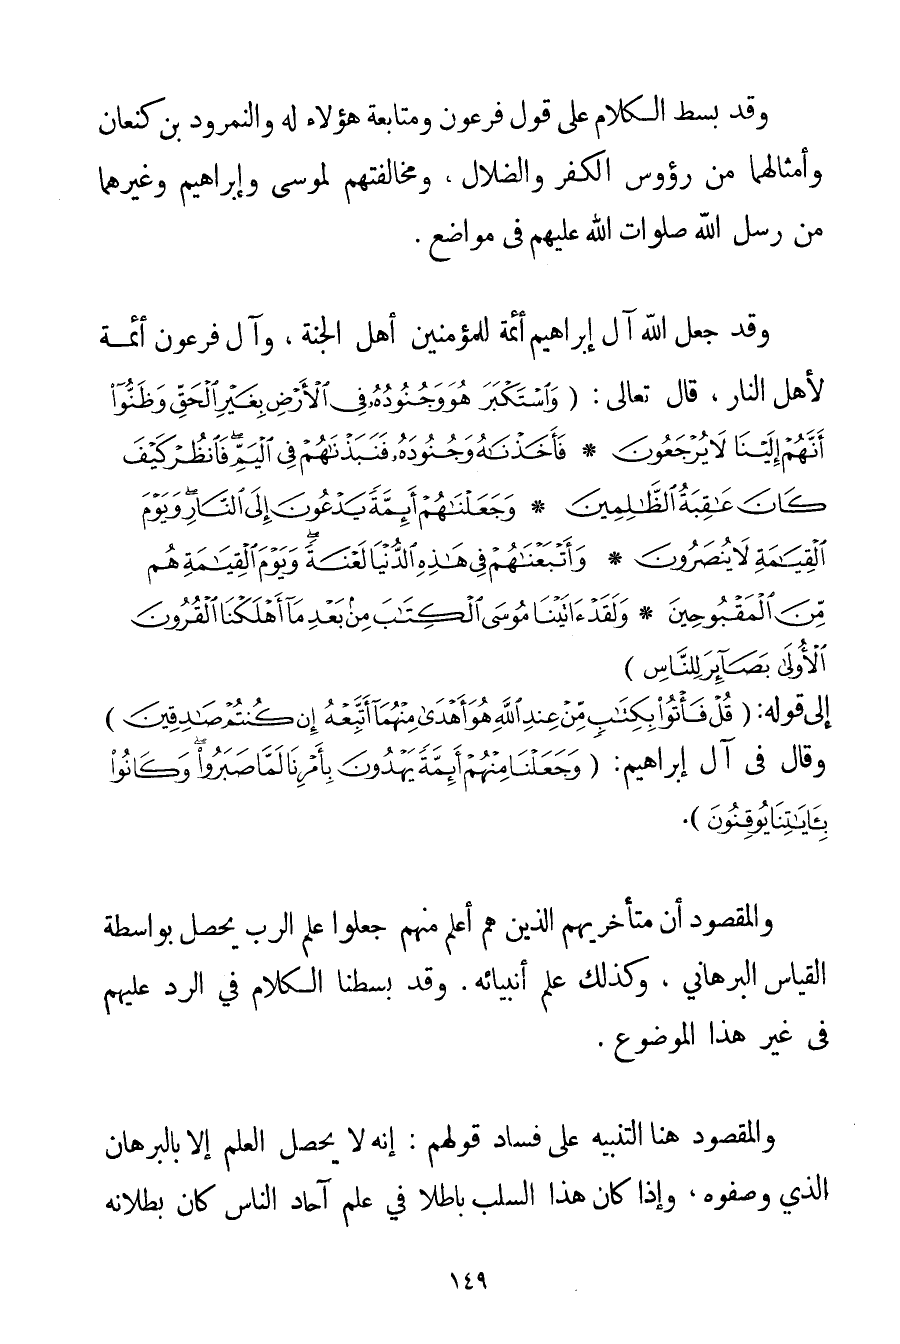 وقد بسط الكلام على قول فرعون ومتابعة هؤلاء له والنمرود بن كنعان
وأمثالهما من رؤوس الكفر والضلال ، ومخالفتهم لموسى وإبراهيم وغيرهما
من رسل الله صلوات الله عليهم فى مواضع .
وقد جعل الله آل إبراهيم أئمة للمؤمنين أهل الجنة ، وآل فرعون أئمة
لأهل النار ، قال تعالى : ( وَٱسْتَكْبَرَ هُوَ وَجُنُودُهُۥ فِى ٱلْأَرْضِ بِغَيْرِ ٱلْحَقِّ وَظَنُّوٓا۟
أَنَّهُمْ إِلَيْنَا لَا يُرْجَعُونَ * فَأَخَذْنَٰهُ وَجُنُودَهُۥ فَنَبَذْنَٰهُمْ فِى ٱلْيَمِّ ۖ فَٱنظُرْ كَيْفَ
كَانَ عَٰقِبَةُ ٱلظَّٰلِمِينَ * وَجَعَلْنَٰهُمْ أَئِمَّةً يَدْعُونَ إِلَى ٱلنَّارِ ۖ وَيَوْمَ
ٱلْقِيَٰمَةِ لَا يُنصَرُونَ * وَأَتْبَعْنَٰهُمْ فِى هَٰذِهِ ٱلدُّنْيَا لَعْنَةً ۖ وَيَوْمَ ٱلْقِيَٰمَةِ هُم
مِّنَ ٱلْمَقْبُوحِينَ * وَلَقَدْ ءَاتَيْنَا مُوسَى ٱلْكِتَٰبَ مِنۢ بَعْدِ مَآ أَهْلَكْنَا ٱلْقُرُونَ
ٱلْأُولَىٰ بَصَآئِرَ لِلنَّاسِ )
إلى قوله: ( قُلْ فَأْتُوا۟ بِكِتَٰبٍ مِّنْ عِندِ ٱللَّهِ هُوَ أَهْدَىٰ مِنْهُمَآ أَتَّبِعْهُ إِن كُنتُمْ صَٰدِقِينَ )
وقال فى آل إبراهيم: ( وَجَعَلْنَا مِنْهُمْ أَئِمَّةً يَهْدُونَ بِأَمْرِنَا لَمَّا صَبَرُوا۟ ۖ وَكَانُوا۟
بِـَٔايَٰتِنَا يُوقِنُونَ ).
والمقصود أن متأخريهم الذين هم أعلم منهم جعلوا علم الرب يحصل بواسطة
القياس البرهاني ، وكذلك علم أنبيائه . وقد بسطنا الكلام في الرد عليهم
فى غير هذا الموضوع .
والمقصود هنا التنبيه على فساد قولهم : إنه لا يحصل العلم إلا بالبرهان
الذي وصفوه ، وإذا كان هذا السلب باطلا في علم آحاد الناس كان بطلانه
١٤٩